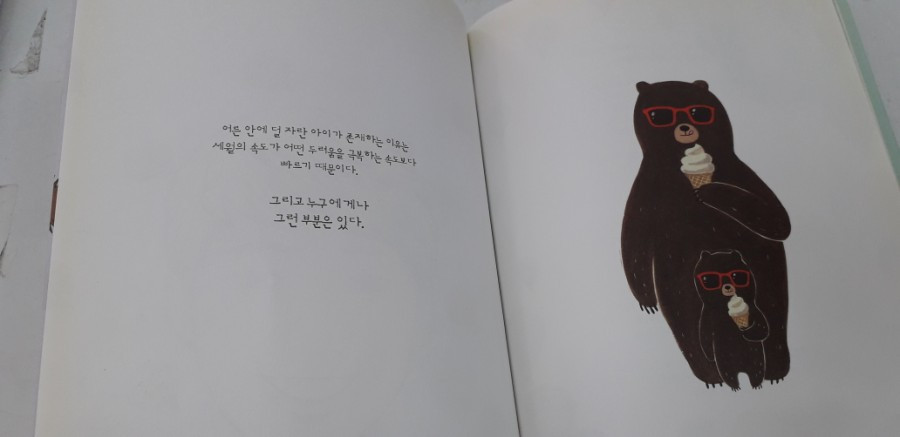 어른 안에 덜 자란 아이가 존재하는 이유는
세월의 속도가 어떤 두려움을 극복하는 속도보다
빠르기 때문이다.
그리고 누구에게나
그런 부분은 있다.